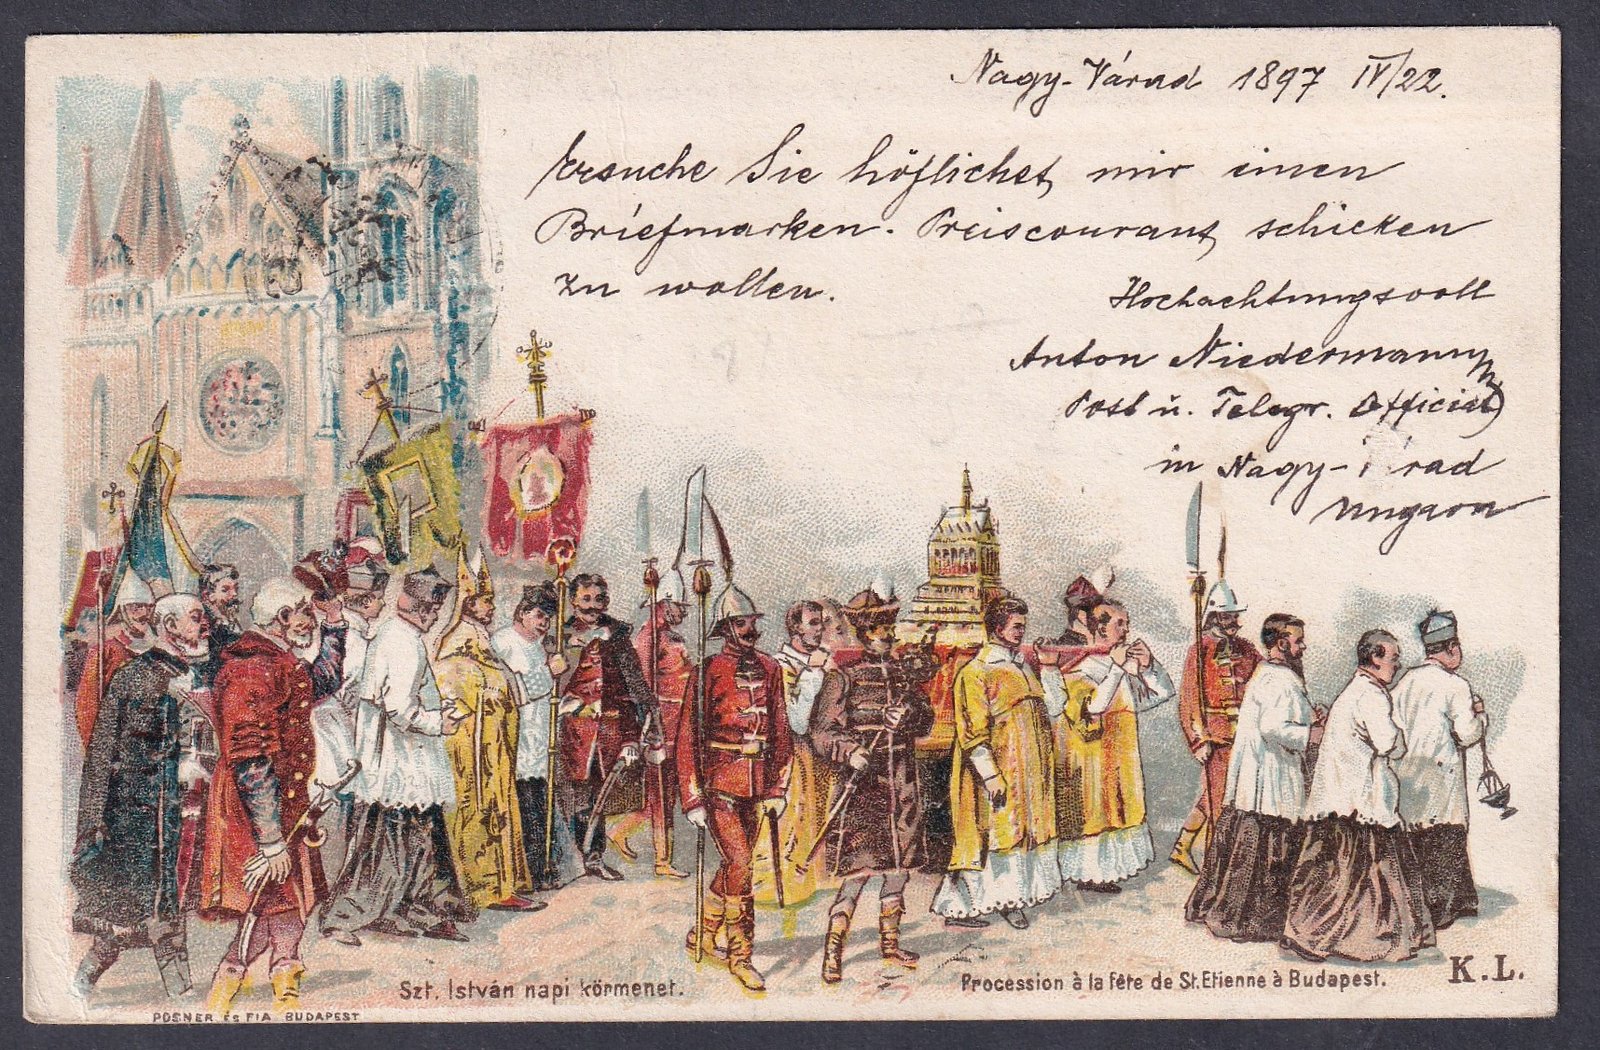 Nagy-Várad 1897 IV/22.
Ersuche Sie höflichst, mir einen
Briefmarken-Preiscourant schicken
zu wollen.
Hochachtungsvoll
Anton Niedermann
Post u. Telegr. Official
in Nagy-Várad
Ungarn
Szt. István napi körmenet.
Procession à la fête de St. Etienne à Budapest.
K.L.
POSNER és FIA BUDAPEST